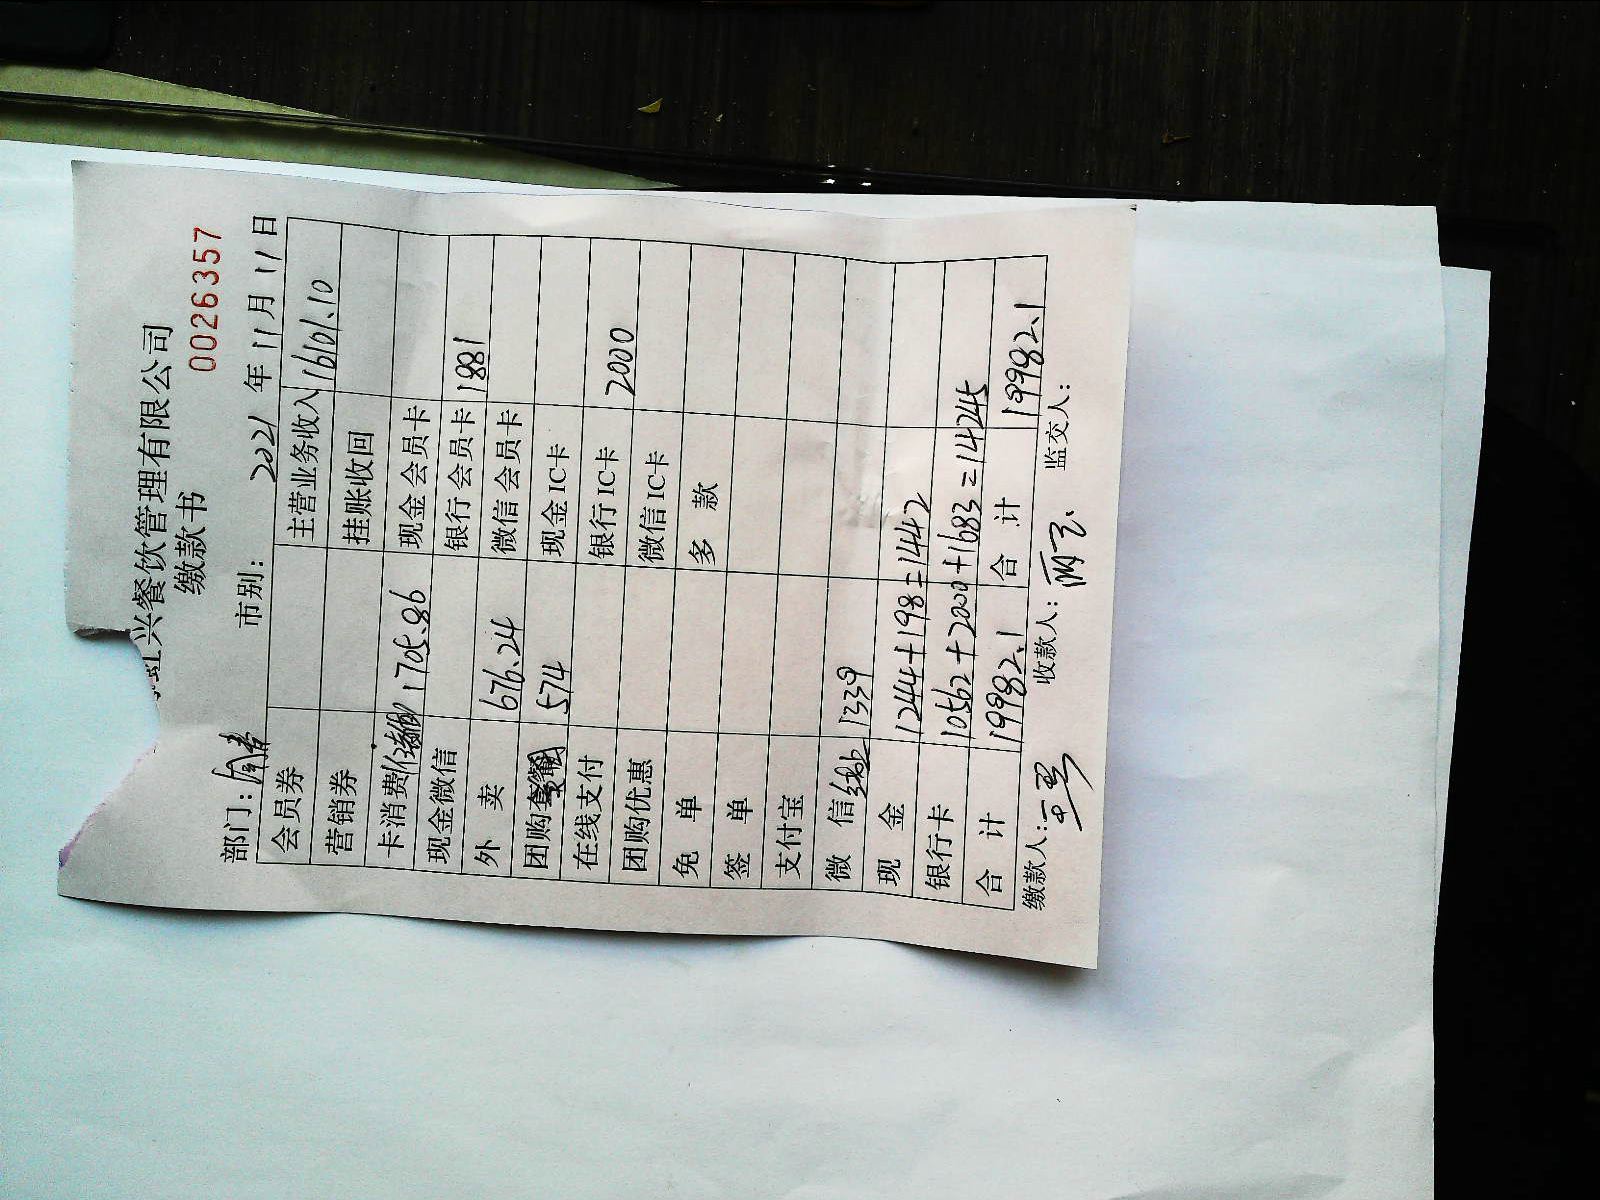 兴餐饮管理有限公司
缴款书
0026357
部门: 市别: 2021 年 11 月 11 日
会员券 主营业务收入 16101.10
营销券 挂账收回
卡消费 1705.86 现金会员卡
现金微信 银行会员卡 1881
外 卖 676.24 微信会员卡
团购 574 现金IC卡
在线支付 银行IC卡
团购优惠 微信IC卡 2000
免 单 多 款
签 单
支付宝
微 信 1339
现 金 1244+198=1442
银行卡 10562+2000+1683=14245
合 计 19982.1 合 计 19982.1
缴款人: 收款人: 监交人: